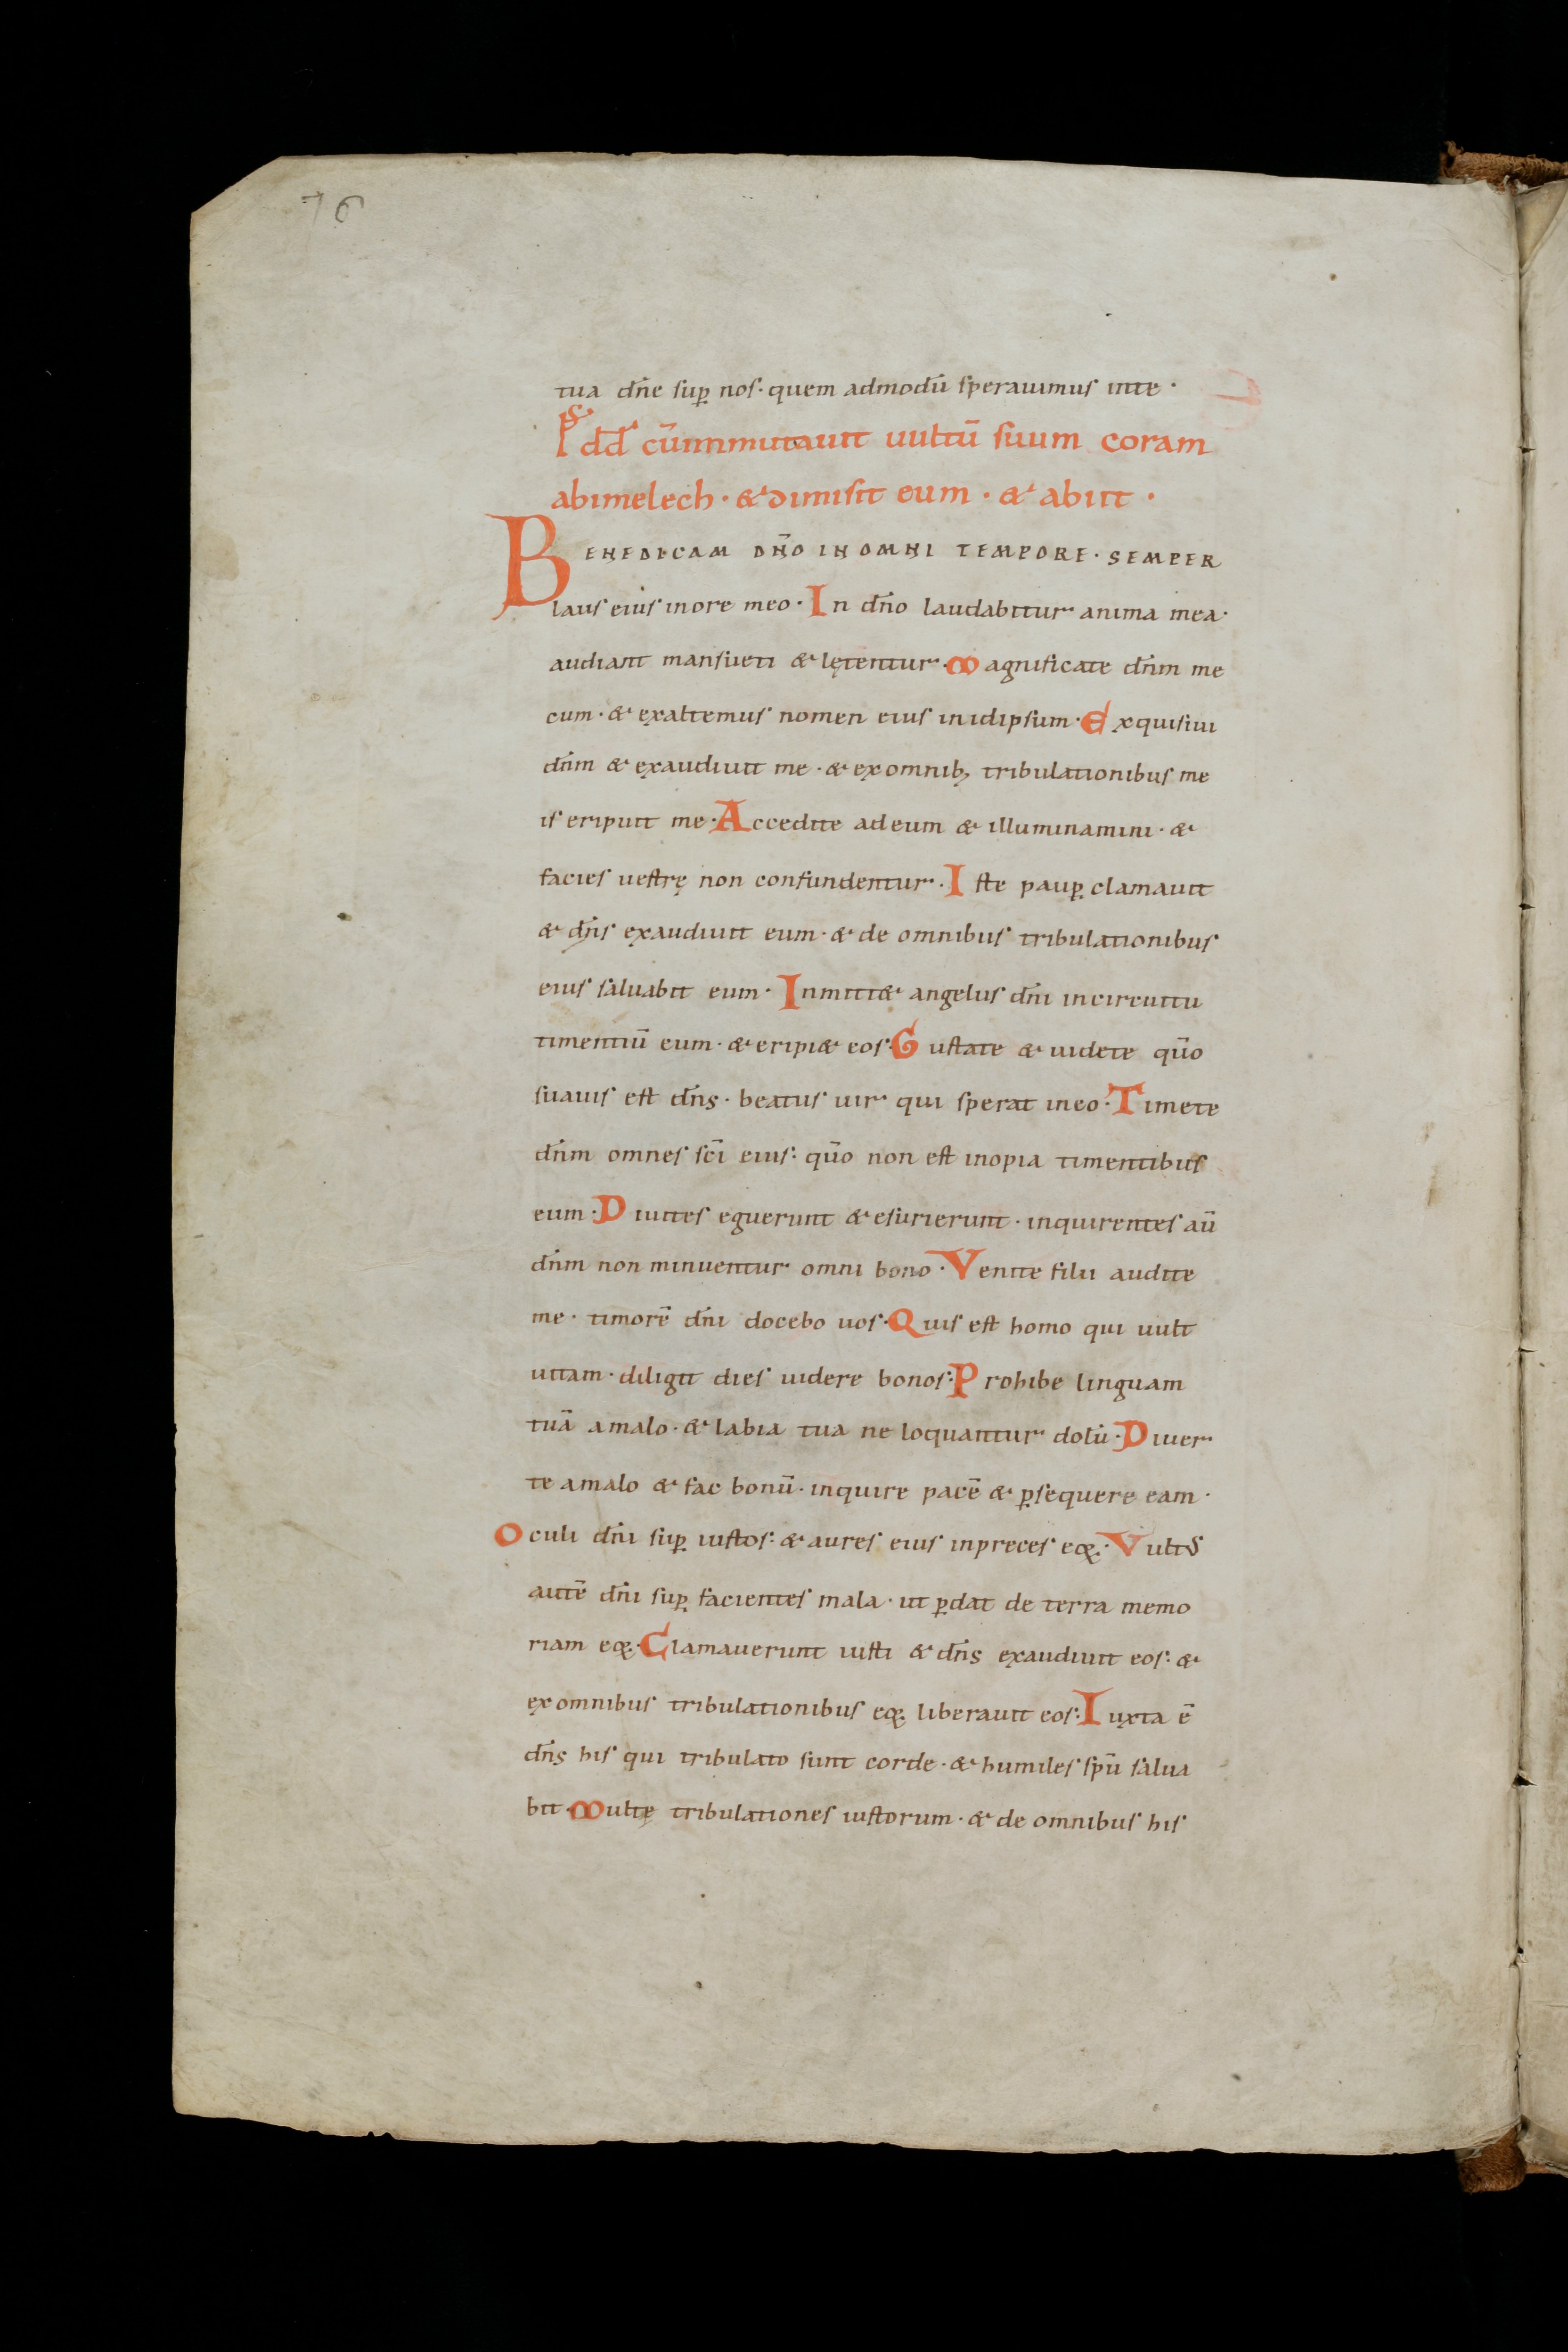 76
tua dn̄e sup̱ nos · quem admodū sperauimus inte ·
Ps̄ dd̄ cūinmutauit uultū suum coram
abimelech · & dimisit eum · & abiit ·
BENEDICAM DN̄O IN OMNI TEMPORE · SEMPER
laus eius inore meo · In dn̄o laudabitur anima mea ·
audiant mansueti & lętentur · Magnificate dn̄m me
cum · & exaltemus nomen eius inidipsum · Exquisiui
dn̄m & exaudiuit me · & exomnib; tribulationibus me
is eripuit me · Accedite adeum & illuminamini · &
facies uestrę non confundentur · Iste paup̱ clamauit
& dn̄s exaudiuit eum · & de omnibus tribulationibus
eius saluabit eum · Inmitt& angelus dn̄i incircuitu
timentiū eum · & eripi& eos · Gustate & uidete qūo
suauis est dn̄s · beatus uir qui sperat ineo · Timete
dn̄m omnes sc̄i eius : qūo non est inopia timentibus
eum · Diuites eguerunt & esurierunt · inquirentes aū
dn̄m non minuentur omni bono · Venite filii audite
me · timorē dn̄i docebo uos · Quis est homo qui uult
uitam · diligit dies uidere bonos : Prohibe linguam
tuā amalo · & labia tua ne loquantur dolū · Diuer
te amalo & fac bonū · inquire pacē & p̱sequere eam ·
Oculi dn̄i sup̱ iustos : & aures eius inpreces eoꝝ · Vultus
autē dn̄i sup̱ facientes mala · ut p̱dat de terra memo
riam eoꝝ · Clamauerunt iusti & dn̄s exaudiuit eos : &
exomnibus tribulationibus eoꝝ liberauit eos : Iuxta ē
dn̄s his qui tribulato sunt corde · & humiles spū salua
bit · Multę tribulationes iustorum · & de omnibus his